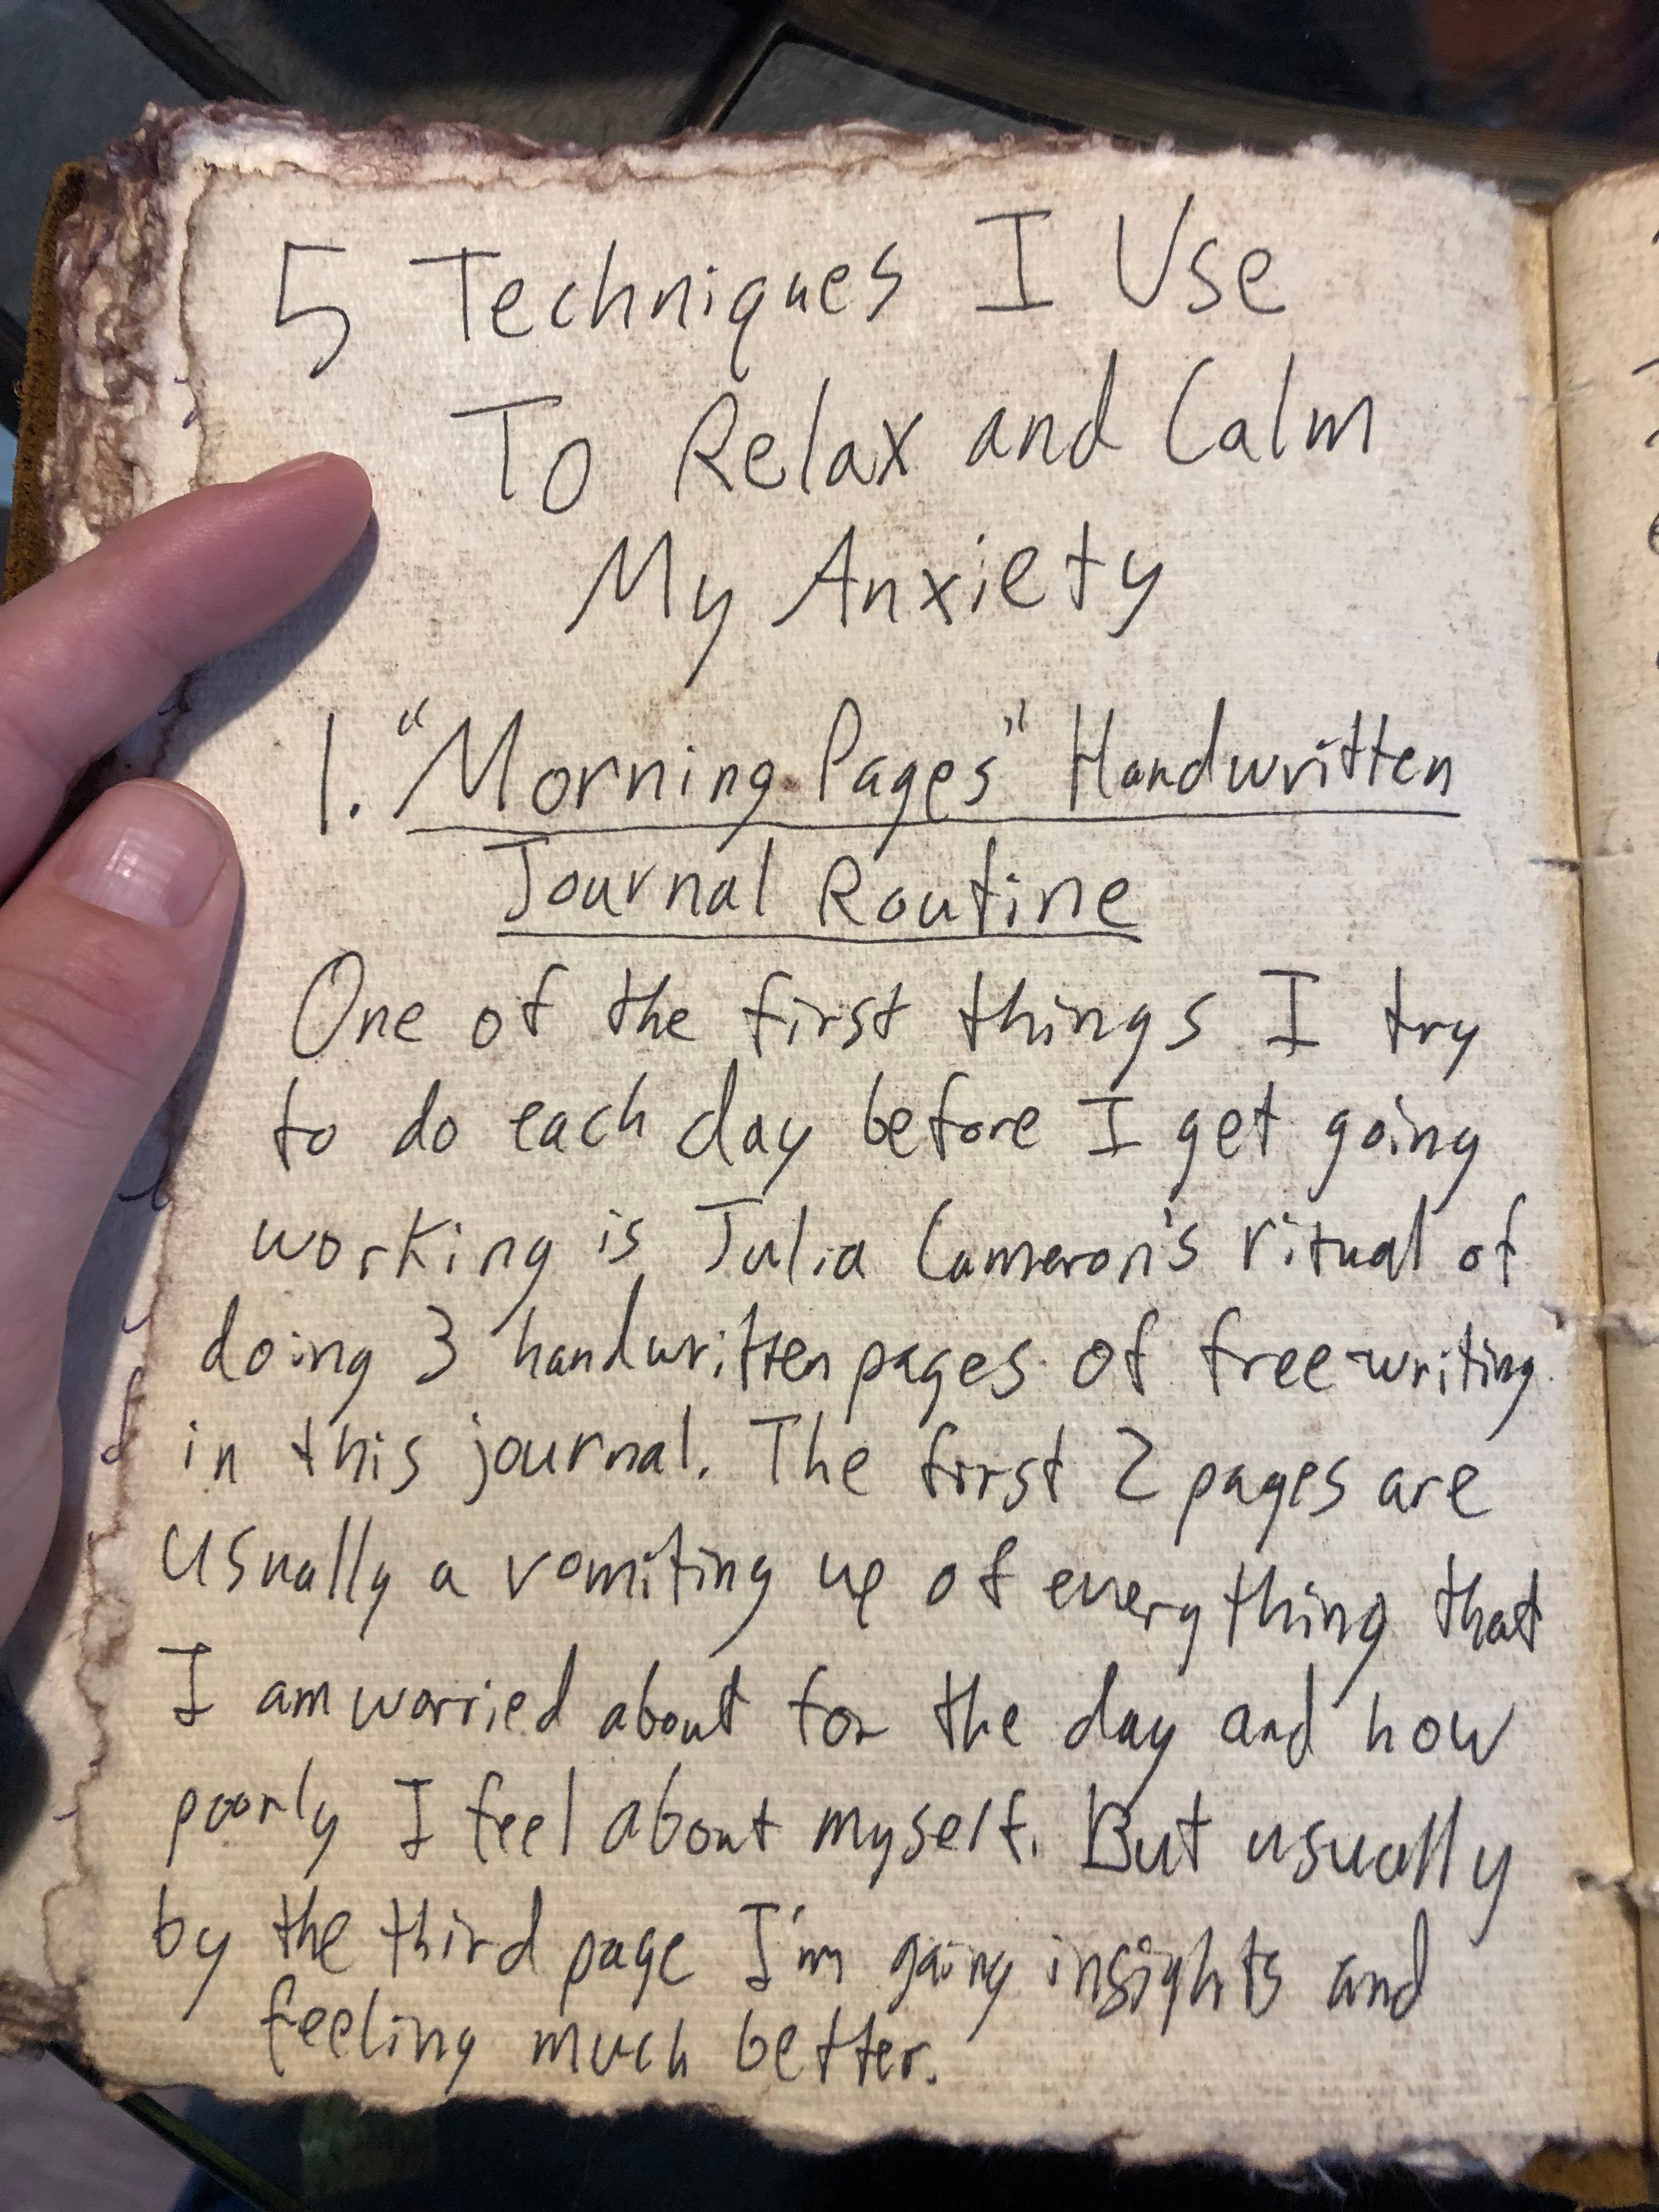 5 Techniques I Use
To Relax and Calm
My Anxiety
1. "Morning Pages" Handwritten
Journal Routine
One of the first things I try
to do each day before I get going
working is Julia Cameron's ritual of
doing 3 handwritten pages of free-writing
in this journal. The first 2 pages are
usually a vomiting up of everything that
I am worried about for the day and how
poorly I feel about myself. But usually
by the third page I'm gaing insights and
feeling much better.